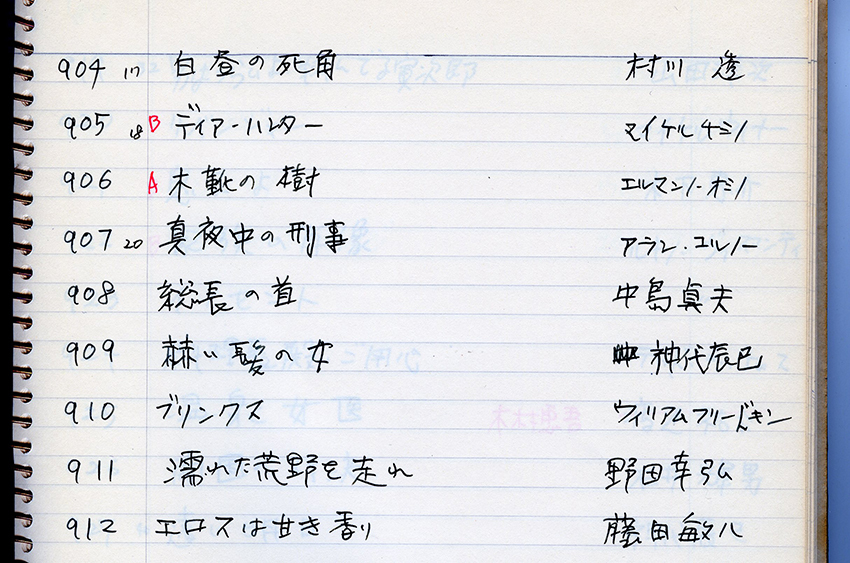 904 17 白昼の死角 村川透
905 18 B ディア・ハンター マイケルチミノ
906 A 木靴の樹 エルマンノ・オミノ
907 20 真夜中の刑事 アラン・コルノー
908 総長の首 中島貞夫
909 赫い髪の女 神代辰巳
910 ブリンクス ウィリアムフリードキン
911 濡れた荒野を走れ 野田幸弘
912 エロスは甘き香り 藤田敏八